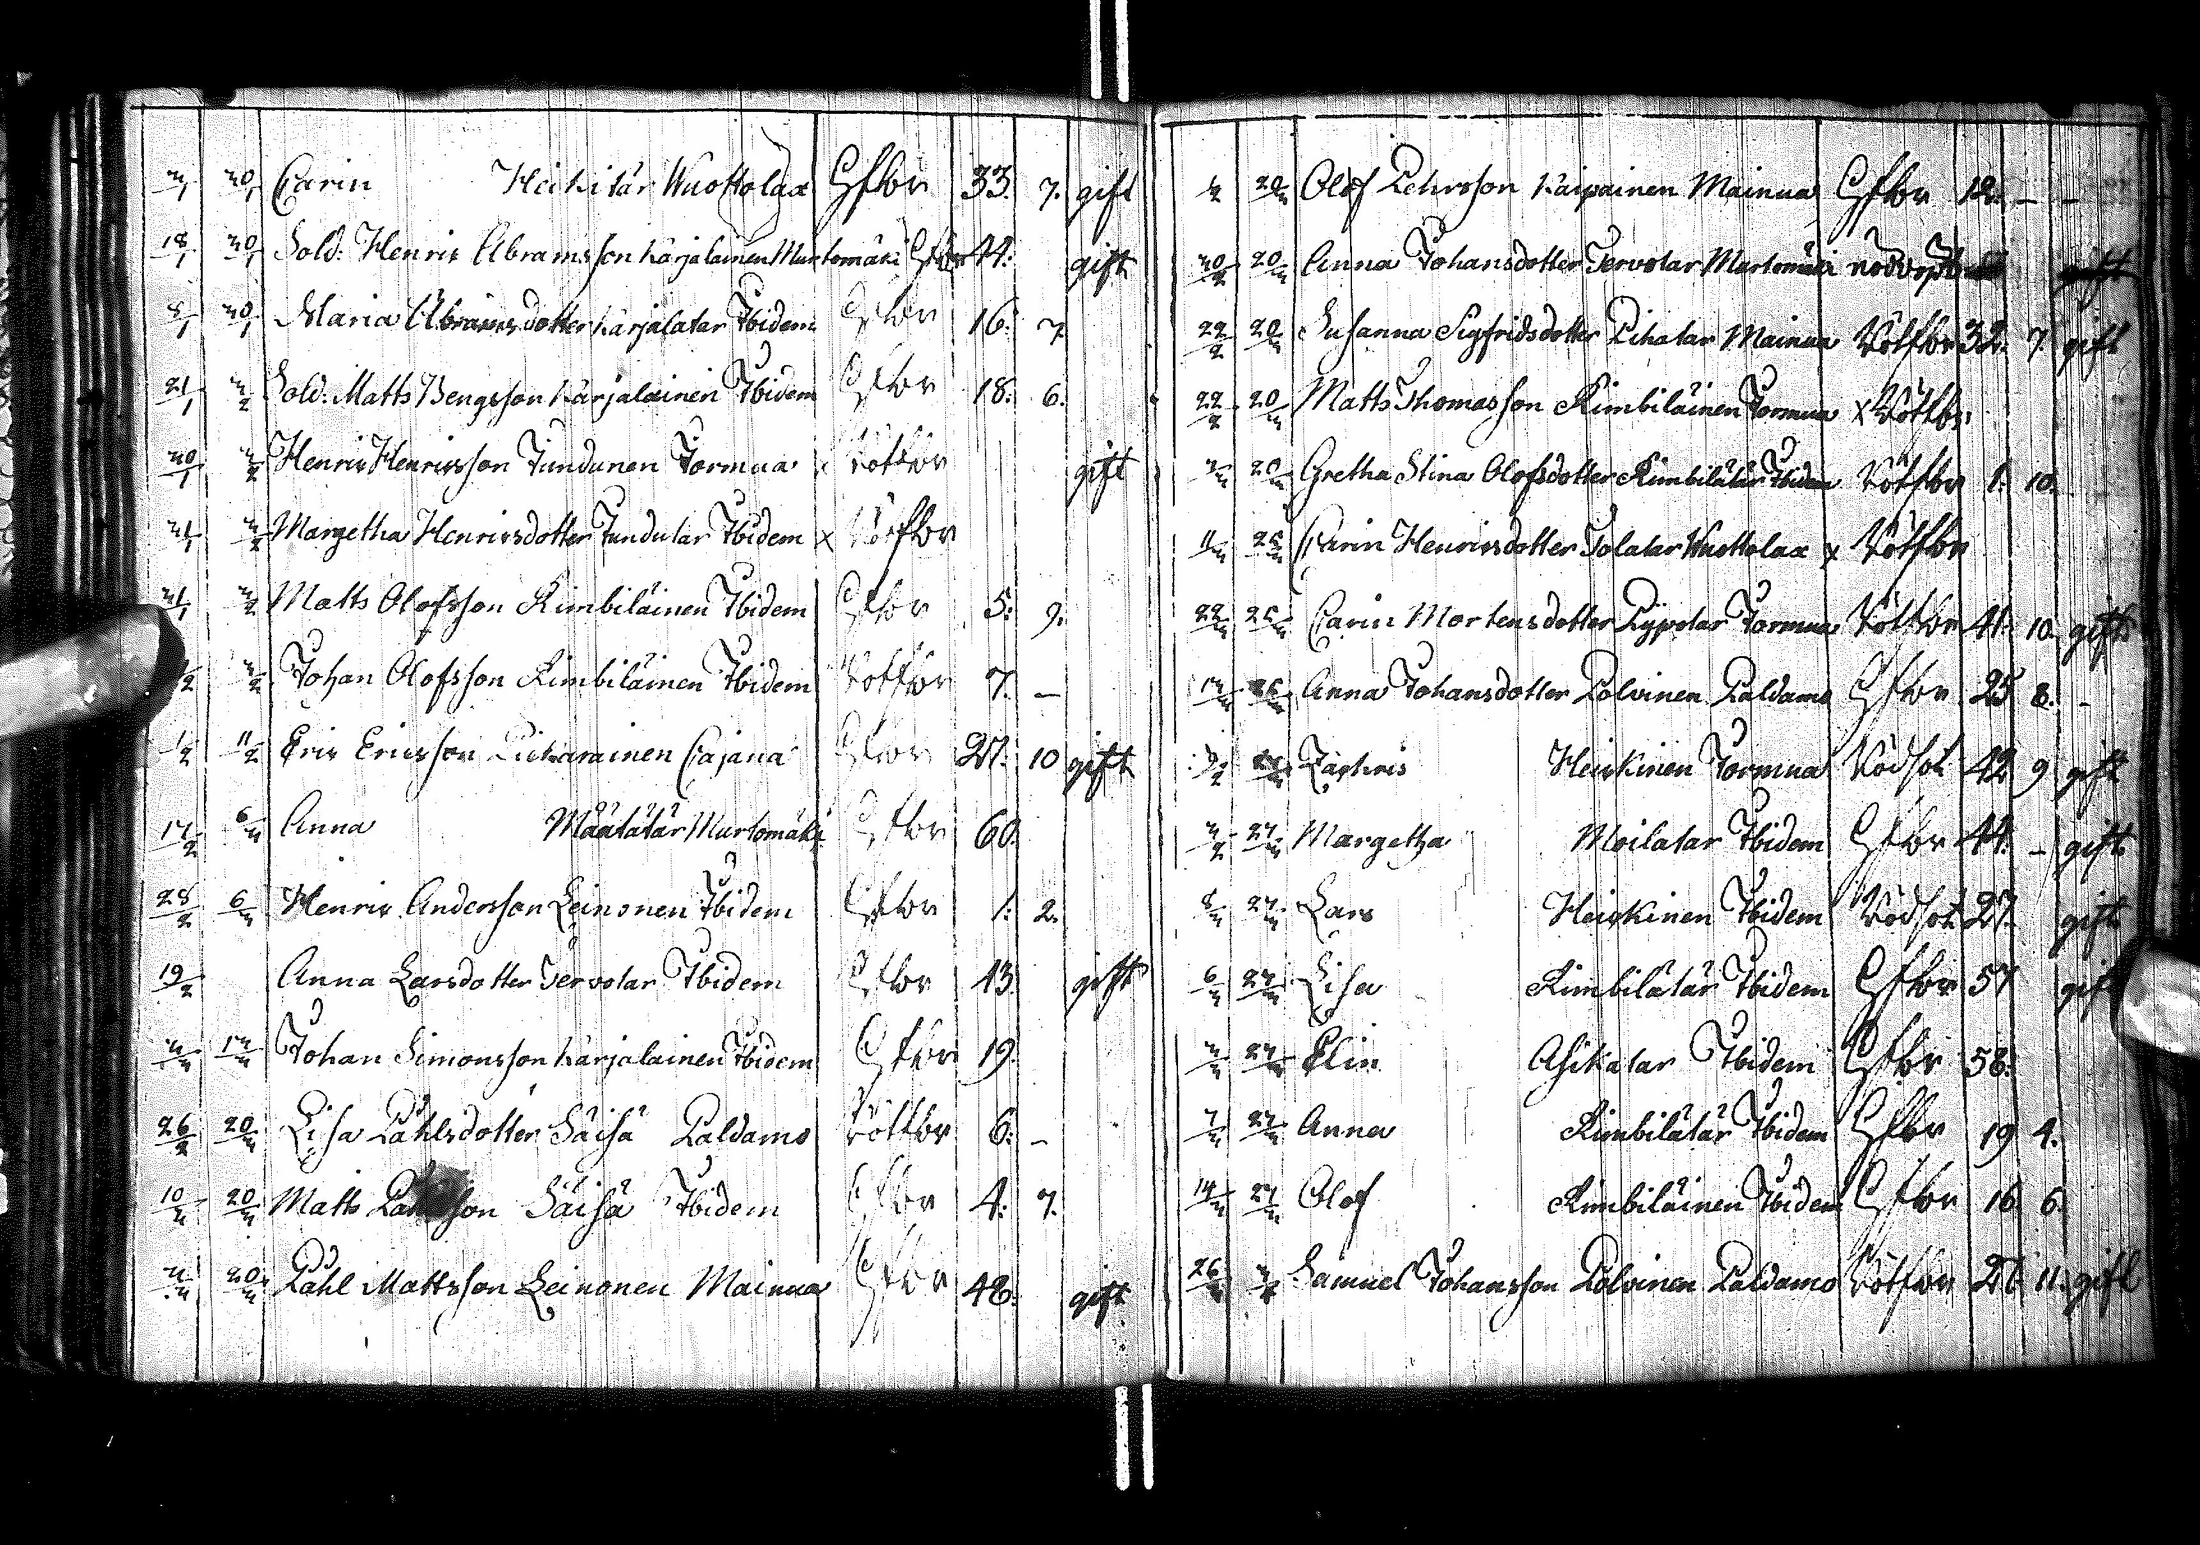 3/1 30/1 Carin Heikitär Wuottolax Gfbr 33. 7. gift
18/1 30/1 Sold: Henric Abramsson Karjalainen Murtomäki Gfbr 44: gift
8/1 30/1 Maria Abramsdotter Karjalatar Ibidem Gfbr 16: 7.
21/1 3/2 Sold: Matts Bengsson Karjalainen Ibidem Gfbr 18: 6.
30/1 3/2 Henric Henricsson Tundunen Tormua x Rötfbr gift
31/1 3/2 Margetha Henricsdotter Tundutar Ibidem x Rötfbr
31/1 3/2 Matts Olofsson Kimbiläinen Ibidem Gfbr 5: 9.
3/2 Johan Olofsson Kimbiläinen Ibidem Rötfbr 7. –
1/2 11/2 Eric Ericsson Cajana Gfbr 27: 10 gift
17/2 6/3 Anna Määtätär Murtomäki Gfbr 60:
28/2 6/3 Henric Andersson Leinonen Ibidem Gfbr 1: 2.
19/2 Anna Larsdotter Tervotar Ibidem Gfbr 43: gift
3/3 13/3 Johan Simonsson Karjalainen Ibidem Gfbr 19:
26/2 20/3 Lisa Påhlsdotter Säisä Paldamo Rötfbr 6: –
10/3 20/3 Matts Säisä Ibidem Gfbr 4: 7.
20/3 Påhl Mattsson Leinonen Mainua Gfbr 48: gift
20/3 Olof Pehrsson Kaipainen Mainua Gfbr 12: – –
30/2 20/3 Anna Johansdotter Tervotar Murtomäki gift
22/2 20/3 Susanna Sigfridsdotter Pikatar Mainua Rötfbr 32: 7 gift
22/2 20/3 Matts Thomasson Kimbiläinen Tormua x Rötfbr
20/3 Gretha Stina Olofsdotter Kimbilätär Ibidem Rötfbr 1: 10.
11/3 25/3 Carin Henricsdotter Tolatar Wuottolax x Rötfbr
22/3 25/3 Carin Mortensdotter Tormua Rötfbr 41: 10. gift
13/3 26/3 Anna Johansdotter Polvinen Paldamo Gfbr 25 8. –
27/3 Heickinen Tormua Rödsot 42 9 gift
27/3 Margetha Moilatar Ibidem Gfbr 44: – gift
8/3 27/3 Lars Heickinen Ibidem Rödsot 27. gift
6/3 27/3 Lisa Kimbilätär Ibidem Gfbr 57 gift
27/3 Elin Asikatar Ibidem Gfbr 58:
7/3 27/3 Anna Kimbilätär Ibidem Gfbr 19 4.
14/3 27/3 Olof Kimbiläinen Ibidem Gfbr 16 6.
Samuel Johansson Polvinen Paldamo Rötfbr 11. gift